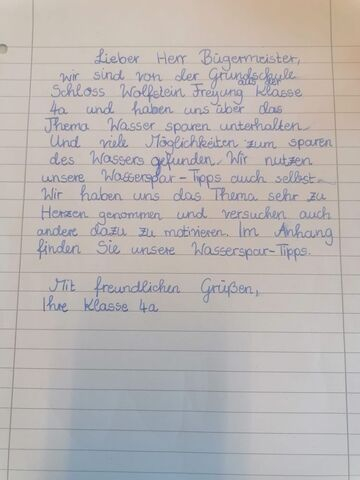 Lieber Herr Bügermeister,
wir sind von der Grundschule
Schloss Wolfstein Freyung aus der Klasse
4a und haben uns über das
Thema Wasser sparen unterhalten.
Und viele Möglichkeiten zum sparen
des Wassers gefunden. Wir nutzen
unsere Wasserspar-Tipps auch selbst.
Wir haben uns das Thema sehr zu
Herzen genommen und versuchen auch
andere dazu zu motivieren. Im Anhang
finden Sie unsere Wasserspar-Tipps.
Mit freundlichen Grüßen,
Ihre Klasse 4a